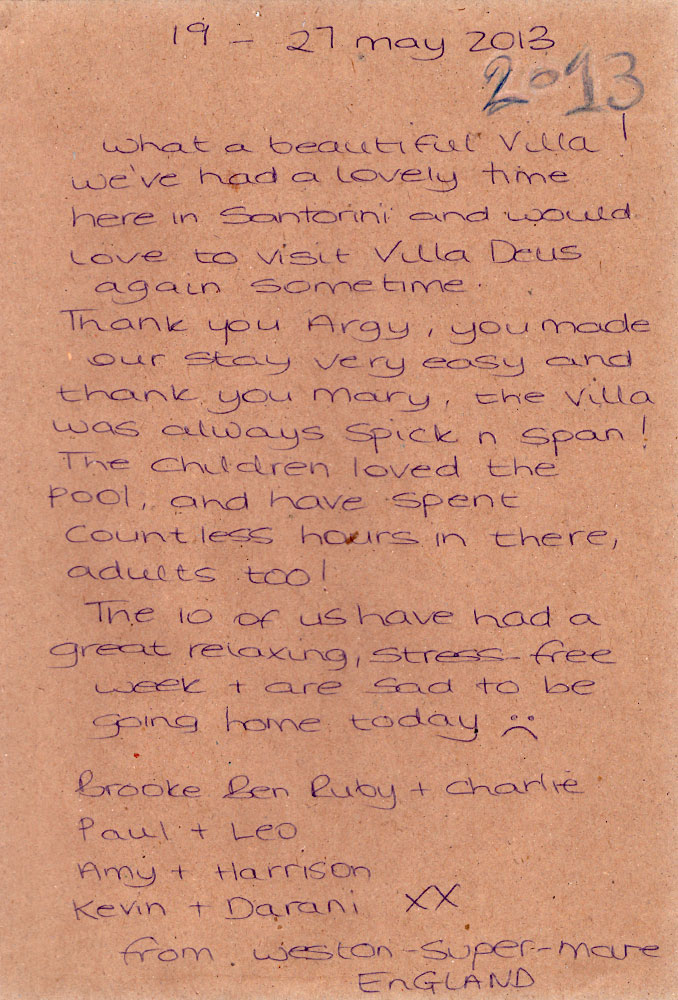 19 - 27 may 2013
2013
what a beautiful Villa!
we've had a lovely time
here in Santorini and would
love to visit Villa Deus
again sometime.
Thank you Argy, you made
our stay very easy and
thank you Mary, the Villa
was always spick n span!
The children loved the
pool, and have spent
countless hours in there,
adults too!
The 10 of us have had a
great relaxing, stress-free
week + are sad to be
going home today :(
Brooke Ben Ruby + Charlie
Paul + Leo
Amy + Harrison
Kevin + Darani XX
from weston-super-mare
ENGLAND